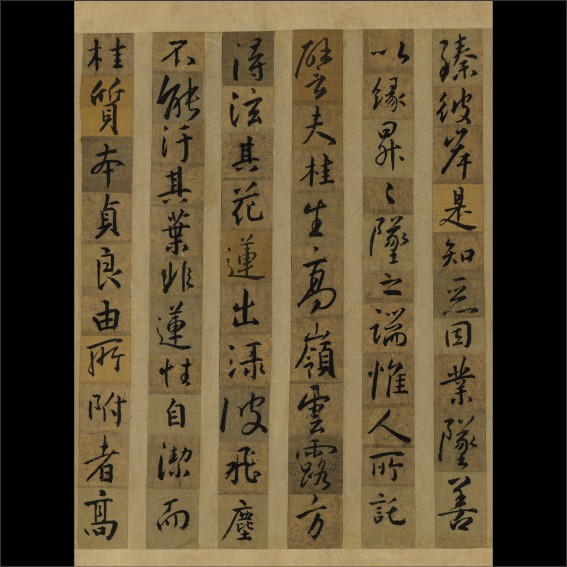 臻彼岸是知惡因業墜善
以緣昇昇墜之端惟人所託
譬夫桂生高嶺雲露方
得泫其花蓮出淥波飛塵
不能汙其葉非蓮性自潔而
桂質本貞良由所附者高